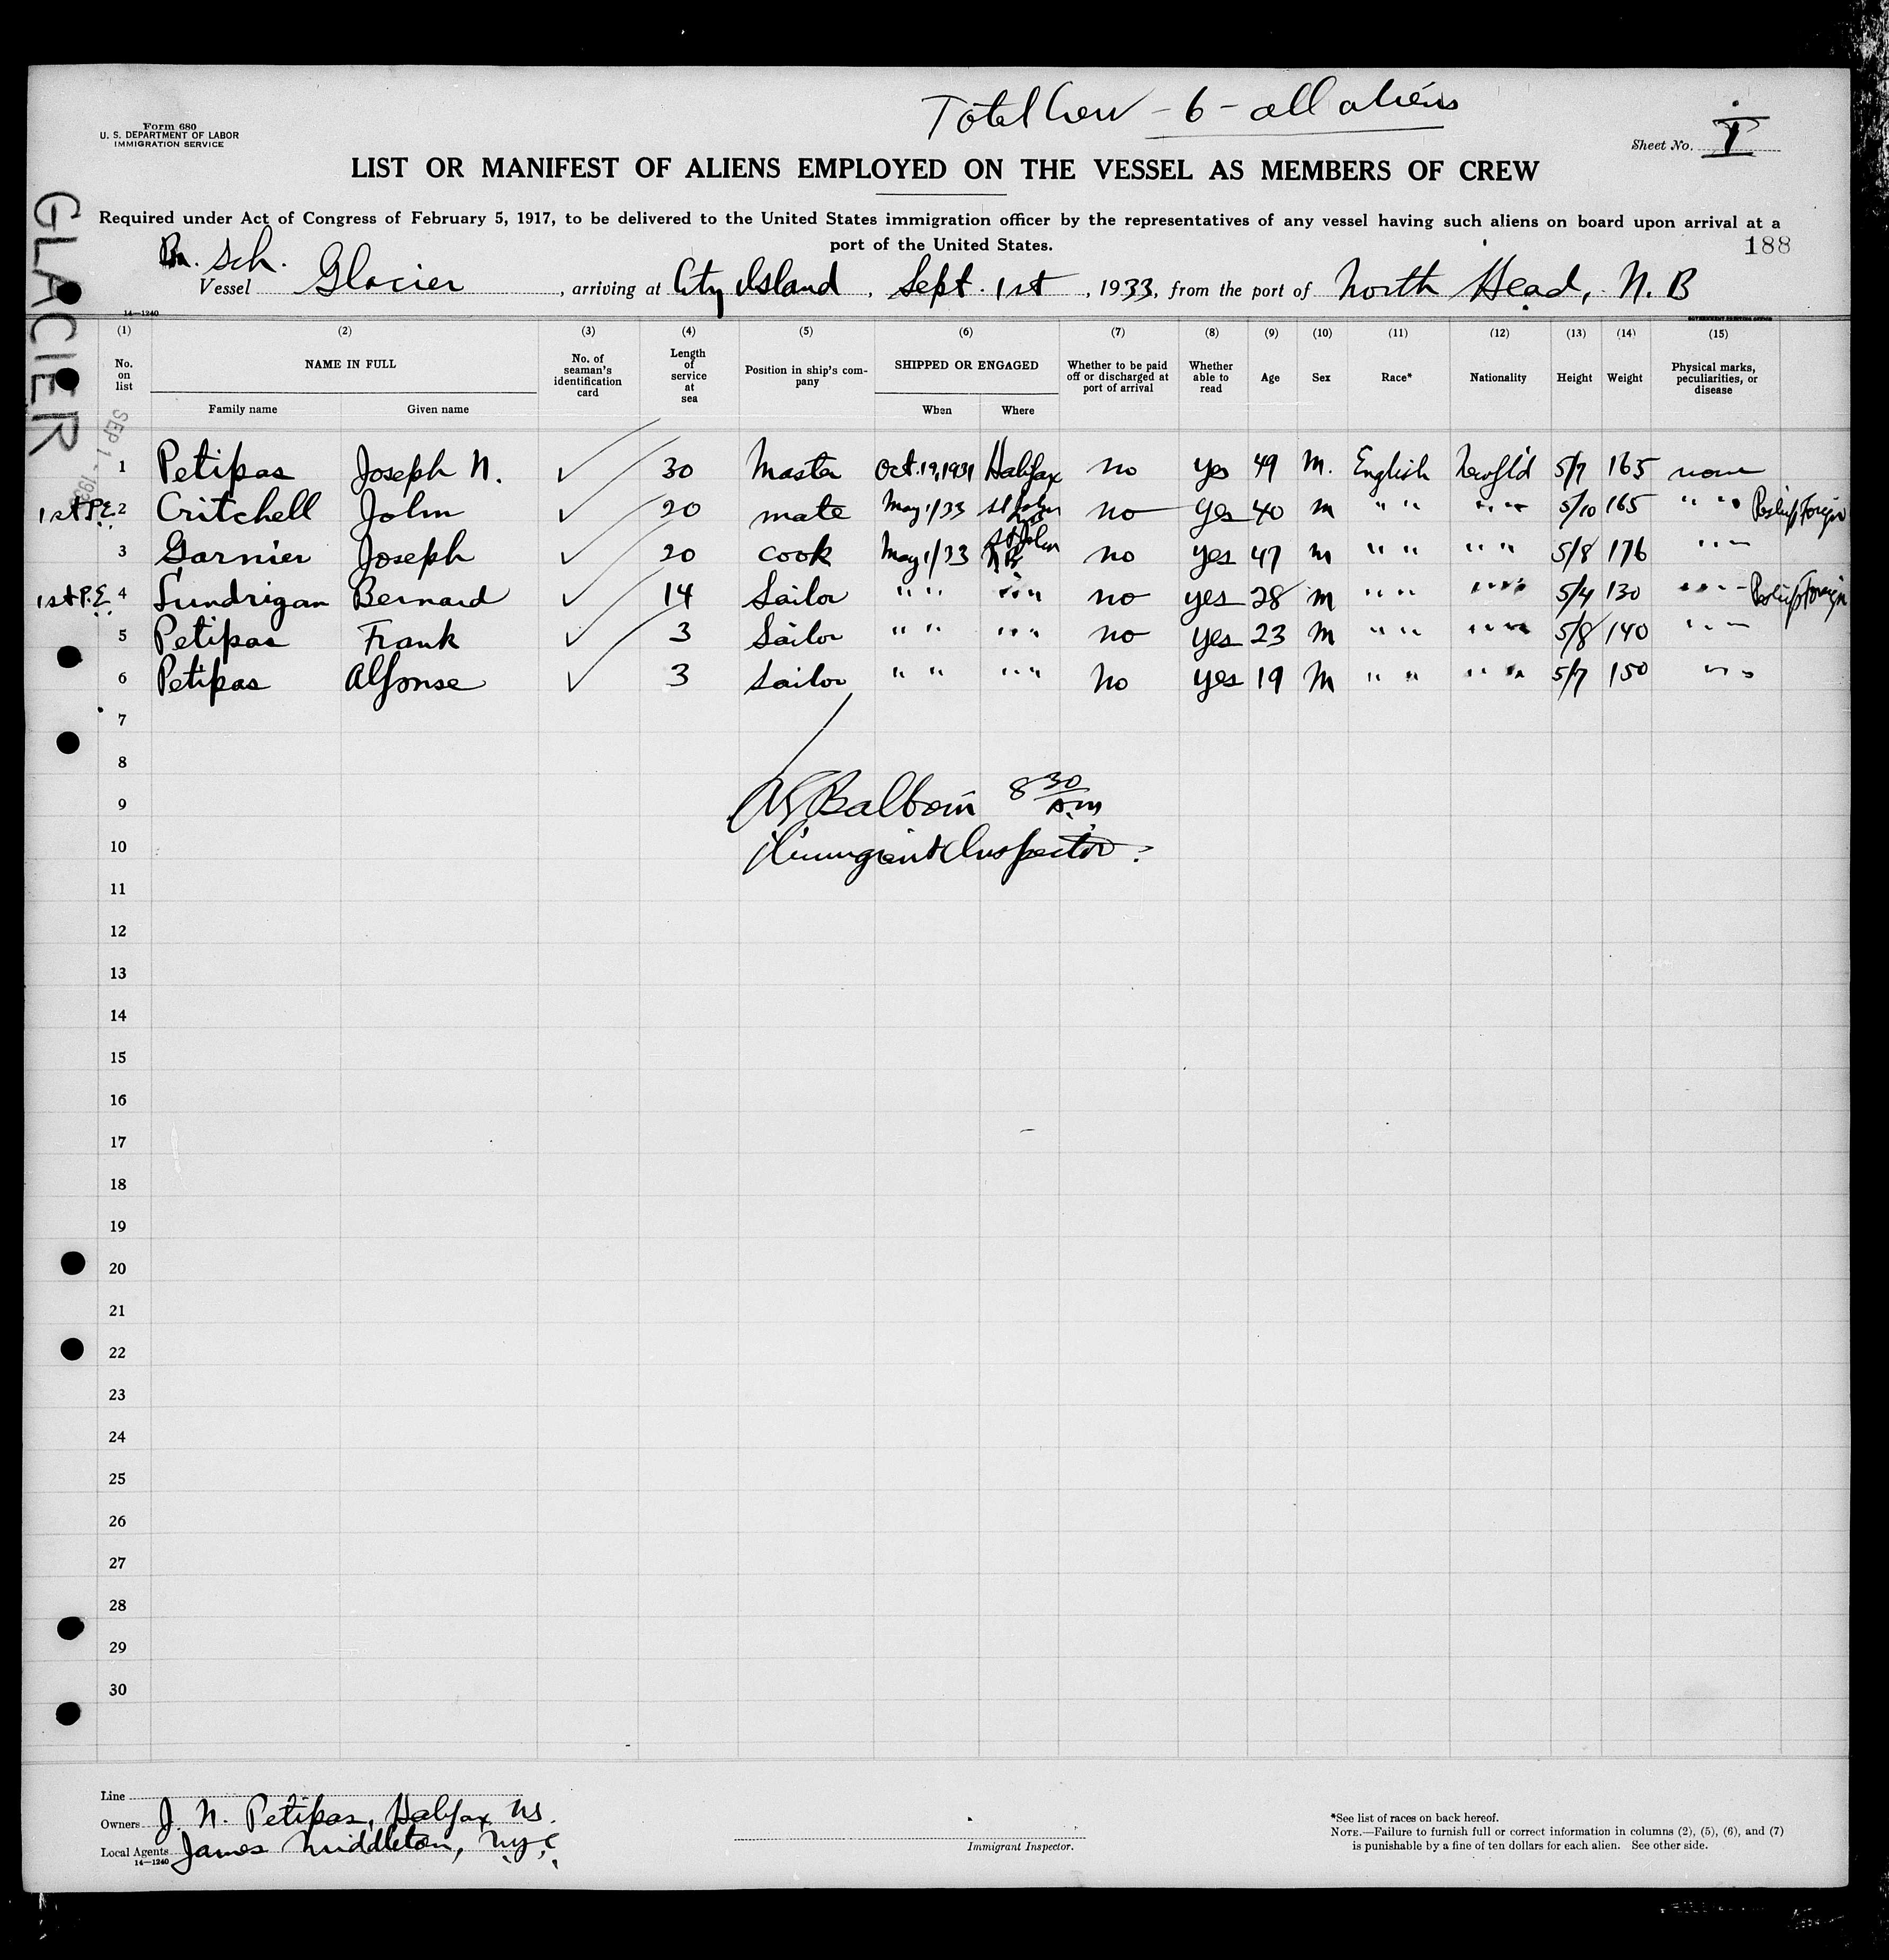 Total Crew - 6 - all aliens
Form 680
U. S. DEPARTMENT OF LABOR
IMMIGRATION SERVICE
Sheet No. I
LIST OR MANIFEST OF ALIENS EMPLOYED ON THE VESSEL AS MEMBERS OF CREW
Required under Act of Congress of February 5, 1917, to be delivered to the United States immigration officer by the representatives of any vessel having such aliens on board upon arrival at a
port of the United States.
188
Br. Sch.
Vessel Glacier, arriving at City Island, Sept. 1st, 1933, from the port of North Head, N. B
14—1240
GOVERNMENT PRINTING OFFICE
GLACIER
SEP 1 - 193
(1) (2) (3) (4) (5) (6) (7) (8) (9) (10) (11) (12) (13) (14) (15)
No. on list
NAME IN FULL
Family name Given name
No. of seaman's identification card
Length of service at sea
Position in ship's company
SHIPPED OR ENGAGED
When Where
Whether to be paid off or discharged at port of arrival
Whether able to read
Age
Sex
Race*
Nationality
Height
Weight
Physical marks, peculiarities, or disease
1 Petipas Joseph N. ✓ 30 Master Oct. 19, 1931 Halifax no yes 49 M. English Newfl'd 5/7 165 none
1st P.E. 2 Critchell John ✓ 20 mate May 1/33 St John no yes 40 m " " " " 5/10 165 " "
3 Garnier Joseph ✓ 20 cook May 1/33 St John NB no yes 47 m " " " " 5/8 176 " "
1st P.E. 4 Lundrigan Bernard ✓ 14 Sailor " " " " no yes 28 m " " " " 5/4 130 " "
5 Petipas Frank ✓ 3 Sailor " " " " no yes 23 m " " " " 5/8 140 " "
6 Petipas Alfonse ✓ 3 Sailor " " " " no yes 19 m " " " " 5/7 150 " "
7
8
9
8 30 a.m
10
Immigrant Inspector.
11
12
13
14
15
16
17
18
19
20
21
22
23
24
25
26
27
28
29
30
Line
Owners J. N. Petipas, Halifax NS.
Local Agents James Middleton, N.Y.C.
14—1240
Immigrant Inspector.
*See list of races on back hereof.
NOTE.—Failure to furnish full or correct information in columns (2), (5), (6), and (7)
is punishable by a fine of ten dollars for each alien. See other side.